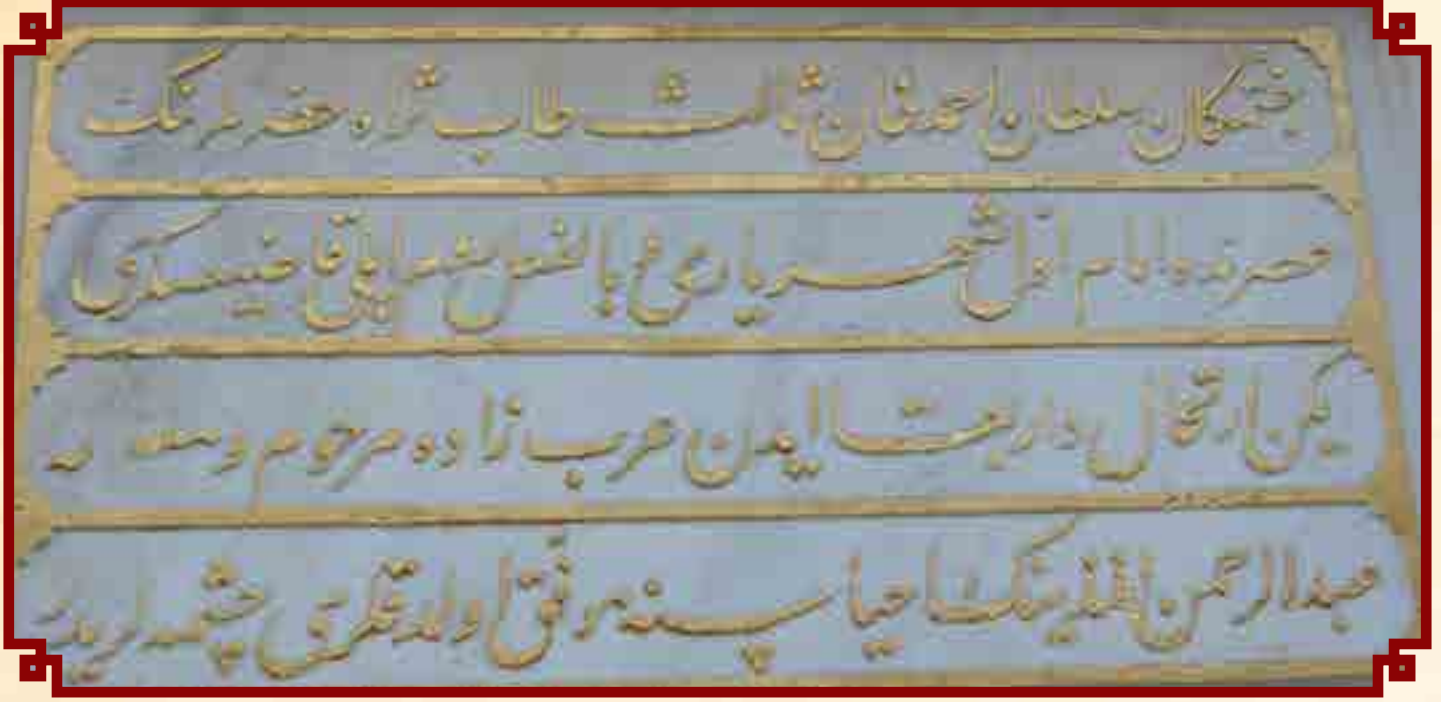 جنتمكان سلطان احمد خان ثالث طاب ثراه حضرتلرينك
عصرنده امام اول شهرياري و بالفعل روم ايلي قاضيسكري
ايكن ارتحال دار بقا ايدن عرب زاده مرحوم و
عبدالرحمن افندينك احياسنه موفق اولدقلري چشمه لريدر